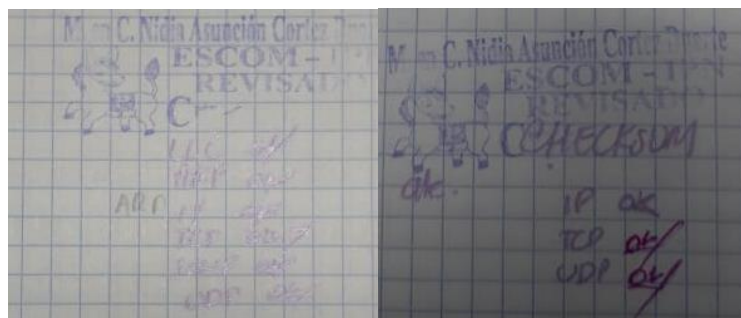 M. en C. Nidia Asunción Cortez
ESCOM -
REVISADO
C
LLC ok
ARP ok
ARP
IP ok
ok
ok
UDP ok
M. en C. Nidia Asunción Cortez Duarte
ESCOM - IPN
REVISADO
CHECKSUM
ok.
IP ok
TCP ok
UDP ok